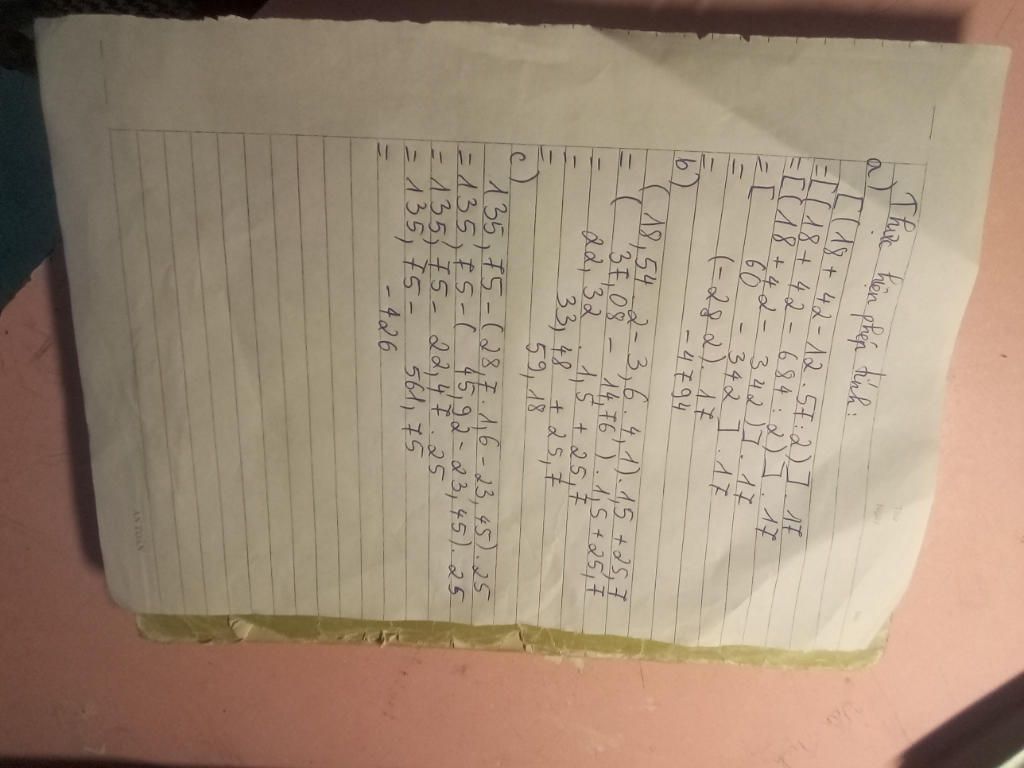 Thực hiện phép tính:
a)
[(18 + 42 - 12 . 57 : 2)] . 17
= [(18 + 42 - 684 : 2)] . 17
= [(18 + 42 - 342)] . 17
= [ 60 - 342 ] . 17
= (-282) . 17
= -4794
b)
(18,54 . 2 - 3,6 . 4,1) . 1,5 + 25,7
= ( 37,08 - 14,76 ) . 1,5 + 25,7
= 22,32 . 1,5 + 25,7
= 33,48 + 25,7
= 59,18
c)
135,75 - (28,7 . 1,6 - 23,45) . 25
= 135,75 - ( 45,92 - 23,45) . 25
= 135,75 - 22,47 . 25
= 135,75 - 561,75
= - 426
AN TOÀN